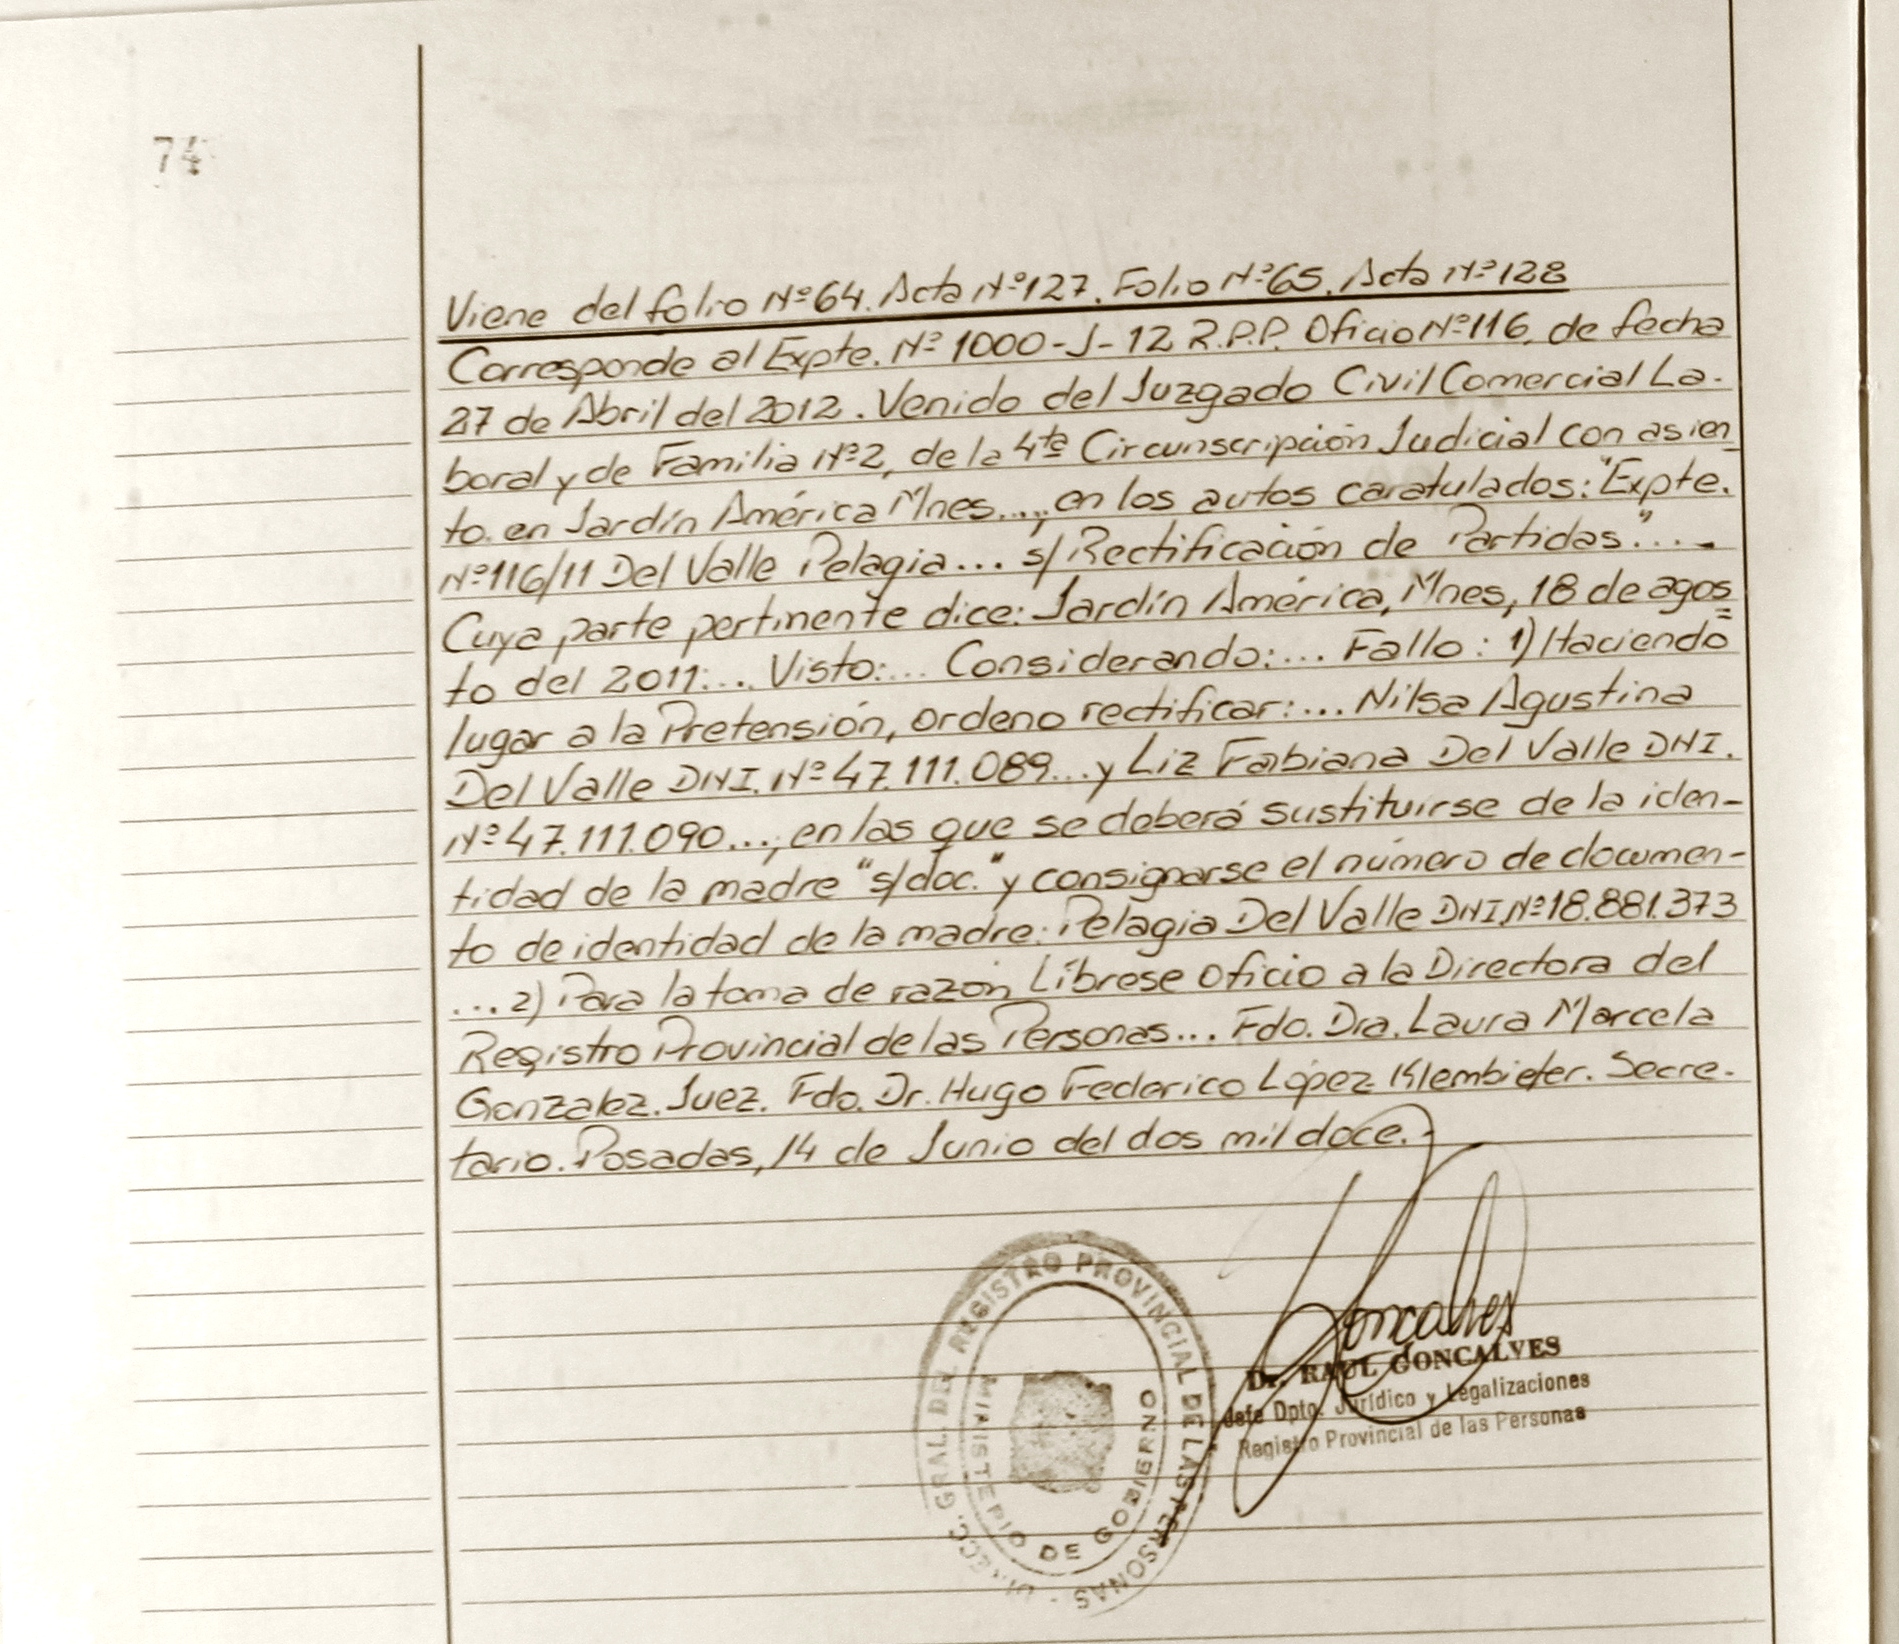 74
Viene del folio Nº64. Acta Nº127. Folio Nº65. Acta Nº128
Corresponde al Expte. Nº 1000-J-12 R.P.P. Oficio Nº116, de fecha
27 de Abril del 2012. Venido del Juzgado Civil Comercial La-
boral y de Familia Nº2, de la 4ta Circunscripción Judicial con asien
to en Jardín América Mnes..., en los autos caratulados: "Expte.
Nº116/11 Del Valle Pelagia... s/ Rectificación de Partidas"....
Cuya parte pertinente dice: Jardín América, Mnes, 18 de agos
to del 2011:... Visto:... Considerando:... Fallo: 1) Haciendo
lugar a la Pretensión, ordeno rectificar:... Nilsa Agustina
Del Valle DNI. Nº 47.111.089...y Liz Fabiana Del Valle DNI.
Nº 47.111.090..., en las que se deberá sustituirse de la iden-
tidad de la madre "s/doc." y consignarse el número de documen-
to de identidad de la madre: Pelagia Del Valle DNI.Nº18.881.373
... 2) Para la toma de razón Líbrese Oficio a la Directora del
Registro Provincial de las Personas... Fdo. Dra. Laura Marcela
Gonzalez. Juez. Fdo. Dr. Hugo Federico López Klembiefer. Secre-
tario. Posadas, 14 de Junio del dos mil doce.-
Goncalves
Dr. RAUL GONCALVES
Jefe Dpto. Jurídico y Legalizaciones
Registro Provincial de las Personas
DIRECC. GRAL. DEL REGISTRO PROVINCIAL DE LAS PERSONAS -
MINISTERIO DE GOBIERNO